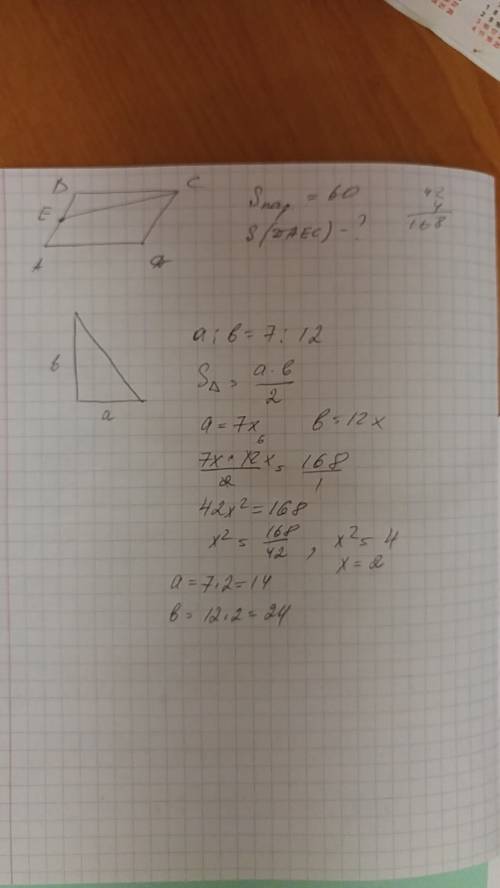 B C
E
A
S пар = 60
S(DAEC) - ?
42
4
168
b
a
a : b = 7 : 12
S△ = a · b / 2
a = 7x b = 12x
6
7x · 12x / 2 = 168 / 1
42x² = 168
x² = 168 / 42 , x² = 4
x = 2
a = 7 · 2 = 14
b = 12 · 2 = 24